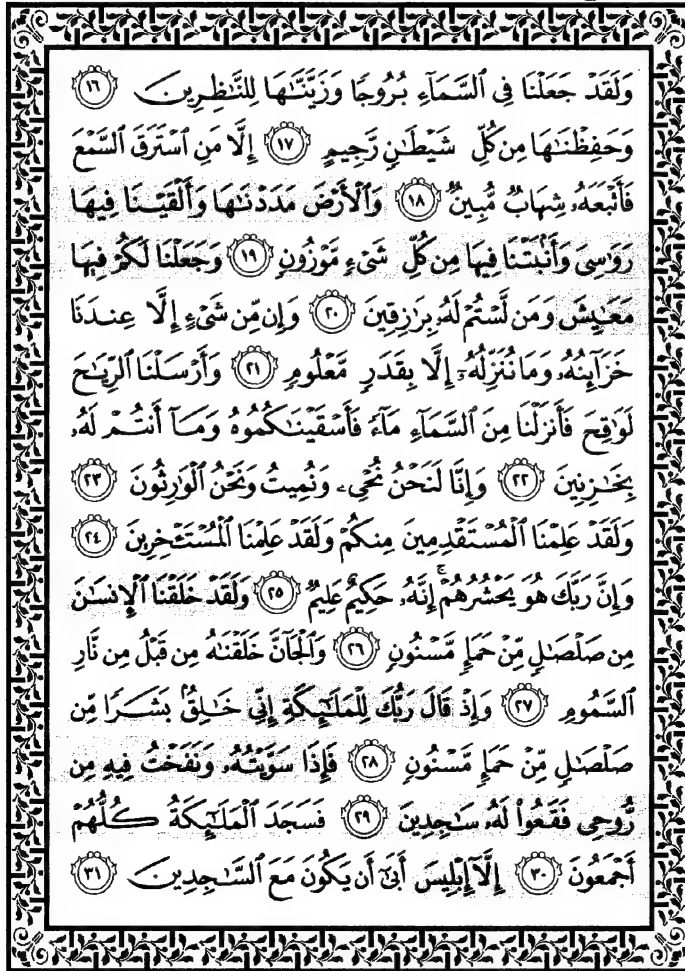 وَلَقَدْ جَعَلْنَا فِى ٱلسَّمَآءِ بُرُوجًا وَزَيَّنَّٰهَا لِلنَّٰظِرِينَ ١٦
وَحَفِظْنَٰهَا مِن كُلِّ شَيْطَٰنٍ رَّجِيمٍ ١٧ إِلَّا مَنِ ٱسْتَرَقَ ٱلسَّمْعَ
فَأَتْبَعَهُۥ شِهَابٌ مُّبِينٌ ١٨ وَٱلْأَرْضَ مَدَدْنَٰهَا وَأَلْقَيْنَا فِيهَا
رَوَٰسِىَ وَأَنۢبَتْنَا فِيهَا مِن كُلِّ شَىْءٍ مَّوْزُونٍ ١٩ وَجَعَلْنَا لَكُمْ فِيهَا
مَعَٰيِشَ وَمَن لَّسْتُمْ لَهُۥ بِرَٰزِقِينَ ٢٠ وَإِن مِّن شَىْءٍ إِلَّا عِندَنَا
خَزَآئِنُهُۥ وَمَا نُنَزِّلُهُۥٓ إِلَّا بِقَدَرٍ مَّعْلُومٍ ٢١ وَأَرْسَلْنَا ٱلرِّيَٰحَ
لَوَٰقِحَ فَأَنزَلْنَا مِنَ ٱلسَّمَآءِ مَآءً فَأَسْقَيْنَٰكُمُوهُ وَمَآ أَنتُمْ لَهُۥ
بِخَٰزِنِينَ ٢٢ وَإِنَّا لَنَحْنُ نُحْىِۦ وَنُمِيتُ وَنَحْنُ ٱلْوَٰرِثُونَ ٢٣
وَلَقَدْ عَلِمْنَا ٱلْمُسْتَقْدِمِينَ مِنكُمْ وَلَقَدْ عَلِمْنَا ٱلْمُسْتَـْٔخِرِينَ ٢٤
وَإِنَّ رَبَّكَ هُوَ يَحْشُرُهُمْ ۚ إِنَّهُۥ حَكِيمٌ عَلِيمٌ ٢٥ وَلَقَدْ خَلَقْنَا ٱلْإِنسَٰنَ
مِن صَلْصَٰلٍ مِّنْ حَمَإٍ مَّسْنُونٍ ٢٦ وَٱلْجَآنَّ خَلَقْنَٰهُ مِن قَبْلُ مِن نَّارِ
ٱلسَّمُومِ ٢٧ وَإِذْ قَالَ رَبُّكَ لِلْمَلَٰٓئِكَةِ إِنِّى خَٰلِقٌۢ بَشَرًا مِّن
صَلْصَٰلٍ مِّنْ حَمَإٍ مَّسْنُونٍ ٢٨ فَإِذَا سَوَّيْتُهُۥ وَنَفَخْتُ فِيهِ مِن
رُّوحِى فَقَعُوا۟ لَهُۥ سَٰجِدِينَ ٢٩ فَسَجَدَ ٱلْمَلَٰٓئِكَةُ كُلُّهُمْ
أَجْمَعُونَ ٣٠ إِلَّآ إِبْلِيسَ أَبَىٰٓ أَن يَكُونَ مَعَ ٱلسَّٰجِدِينَ ٣١